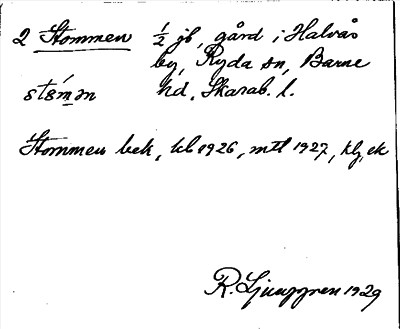 2 Stommen ½ jb, gård i Halvås
by, Ryda sn, Barne
hd, Skarab. l.
Stommen bek, kb 1926, mtl 1927, klj, ek
R. Ljunggren 1929